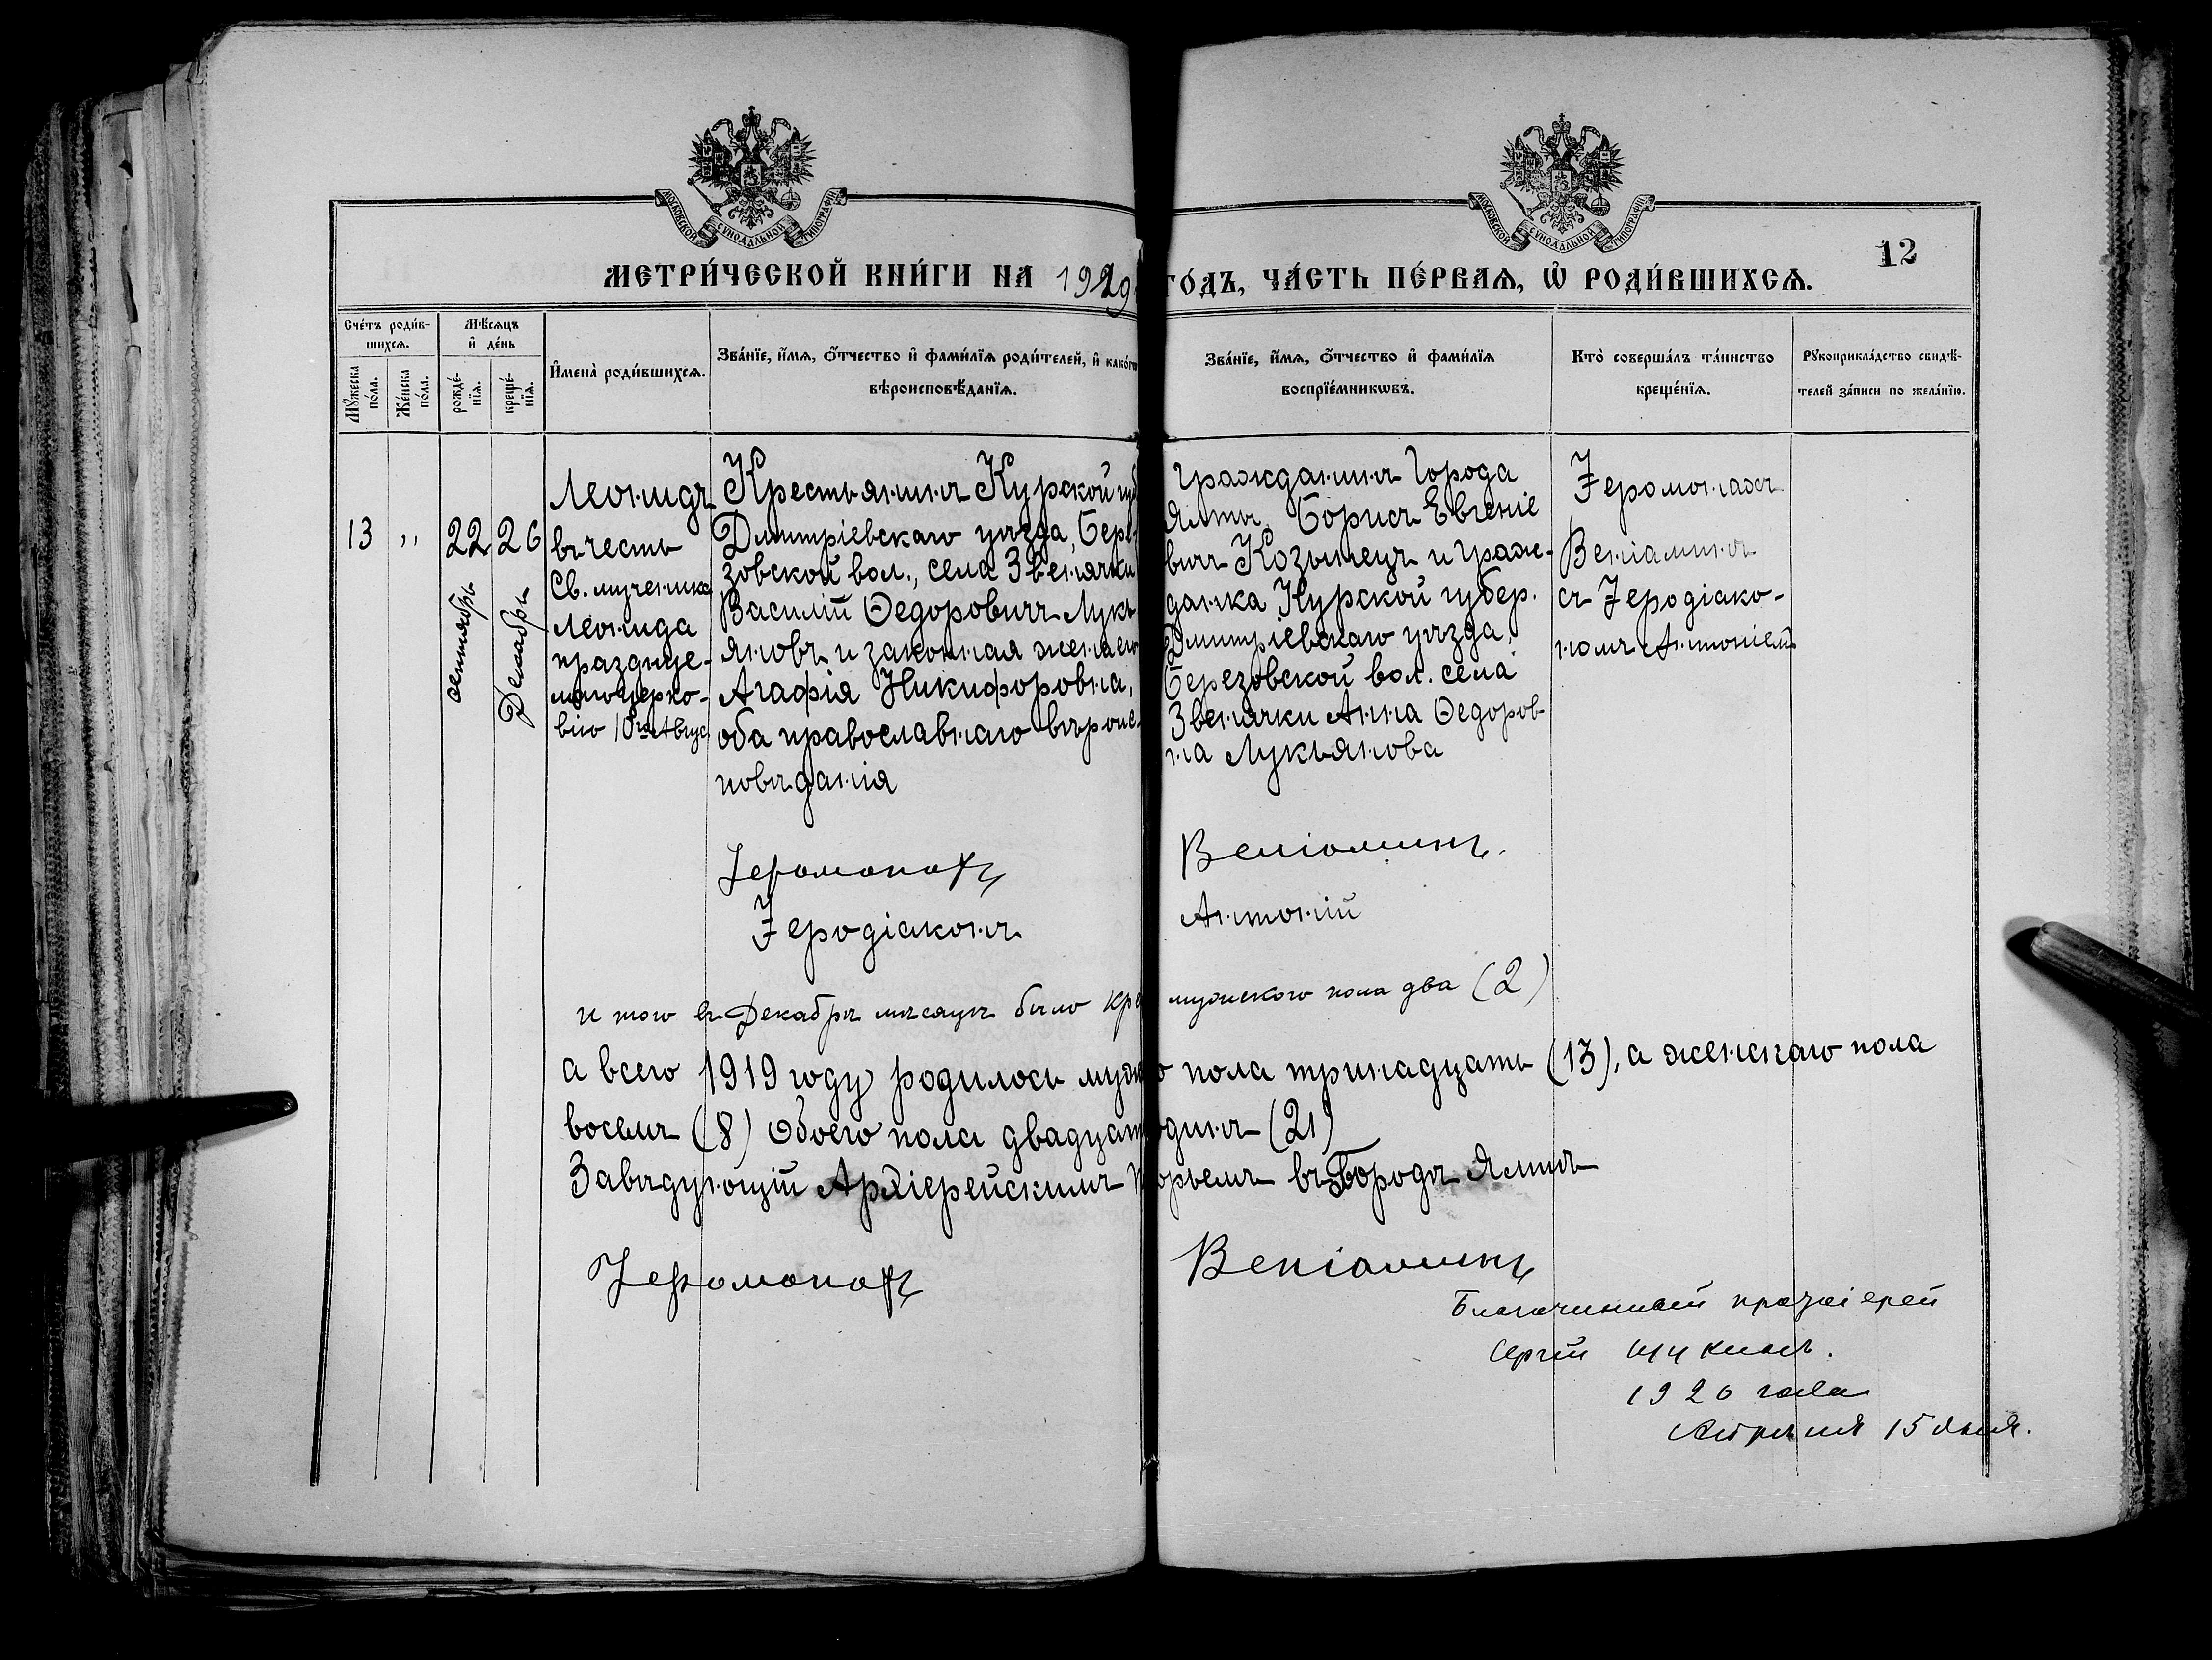 МОСКОВСКОЙ СѴНОДАЛЬНОЙ ТИПОГРАФІИ
МОСКОВСКОЙ СѴНОДАЛЬНОЙ ТИПОГРАФІИ
12
МЕТРИ́ЧЕСКОЙ КНИ́ГИ НА 1919 ГО́ДЪ, ЧА́СТЬ ПЕ́РВАѦ, Ѿ РОДИ́ВШИХСѦ.
Сче́тъ роди́в-
шихсѧ.
Мꙋ́жеска по́ла.
Же́нска по́ла.
Мѣ́сѧцъ
и҆ де́нь
рожде́-
нїѧ.
креще́-
нїѧ.
И҆мена̀ роди́вшихсѧ.
Зва́нїе, и҆́мѧ, ѻ҆́тчество и҆ фами́лїѧ роди́телей, и҆ како́гѡ
вѣроисповѣ́данїѧ.
Зва́нїе, и҆́мѧ, ѻ҆́тчество и҆ фами́лїѧ
воспрїе́мникѡвъ.
Кто̀ соверша́лъ та́инство
креще́нїѧ.
Рꙋкоприкла́дство свидѣ́-
телей за́писи по жела́нїю.
13
"
22
сентябрь
26
Декабрь
Леонидъ
въ честь
Св. мученика
Леонида
праздуе-
маго церко-
вію 10го Авгус.
Крестьянинъ Курской губ
Димитріевскаго уѣзда, Бере
зовской вол., села Звенячки
Василій Ѳедоровичъ Лукь
яновъ и законная жена его
Агафія Никифоровна,
оба православнаго вѣроис-
повѣданія
Гражданинъ Города
Ялты, Борисъ Евгеніе
вичъ Козынецъ и граж-
данка Курской губер.
Димитріевскаго уѣзда,
Березовской вол. села
Звенячки Анна Ѳедоров
на Лукьянова
Іеромонахъ
Веніаминъ
съ Іеродіако-
номъ Антоніемъ
Іеромонахъ Веніаминъ.
Іеродіаконъ Антоній
и того въ Декабрѣ мѣсяцѣ было кре мужскаго пола два (2)
а всего 1919 году родилось муж о пола тринадцать (13), а женскаго пола
восемь (8) Обоего пола двадцать одинъ (21)
Завѣдующій Архіерейскимъ подворьемъ въ Городѣ Ялтѣ
Іеромонахъ Веніаминъ
Благочинный протоіерей
Сергій Щукинъ.
1920 года
Апрѣля 15 дня.